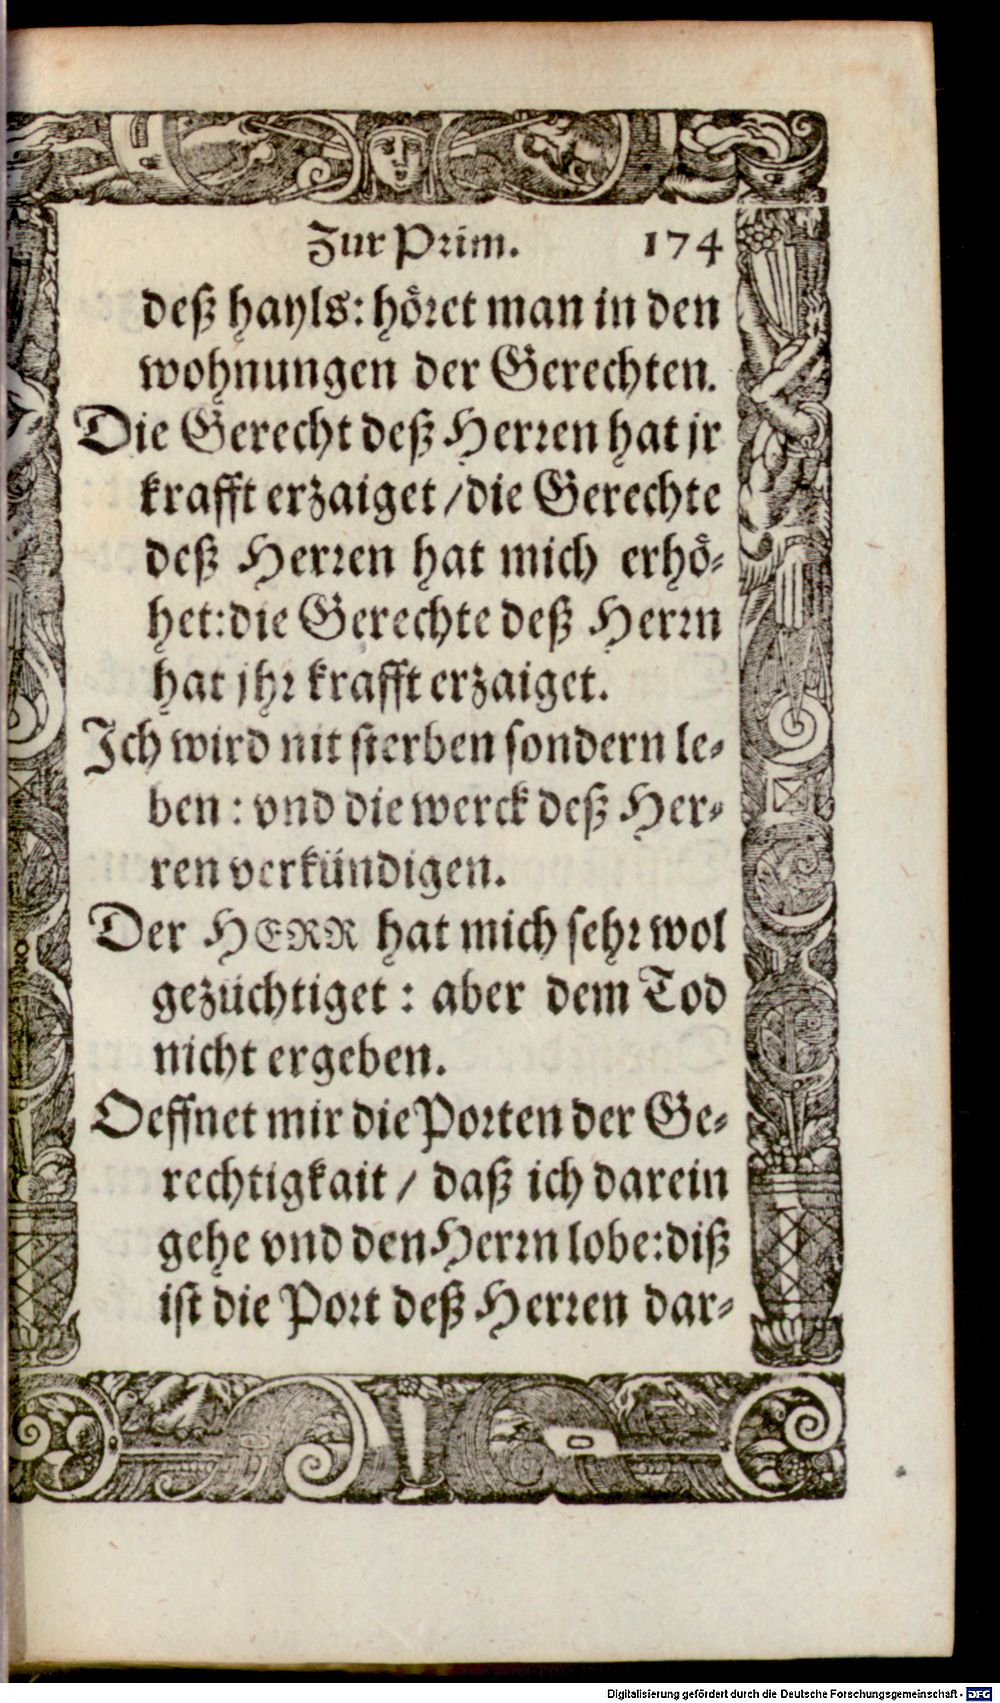 Zur Prim. 174
deß hayls: höret man in den
wohnungen der Gerechten.
Die Gerecht deß Herren hat jr
krafft erzaiget / die Gerechte
deß Herren hat mich erhö-
het: die Gerechte deß Herrn
hat jhr krafft erzaiget.
Ich wird nit sterben sondern le-
ben: vnd die werck deß Her-
ren verkündigen.
Der HERR hat mich sehr wol
gezüchtiget: aber dem Tod
nicht ergeben.
Oeffnet mir die Porten der Ge-
rechtigkait / daß ich darein
gehe vnd den Herrn lobe: diß
ist die Port deß Herren dar-
Digitalisierung gefördert durch die Deutsche Forschungsgemeinschaft - DFG